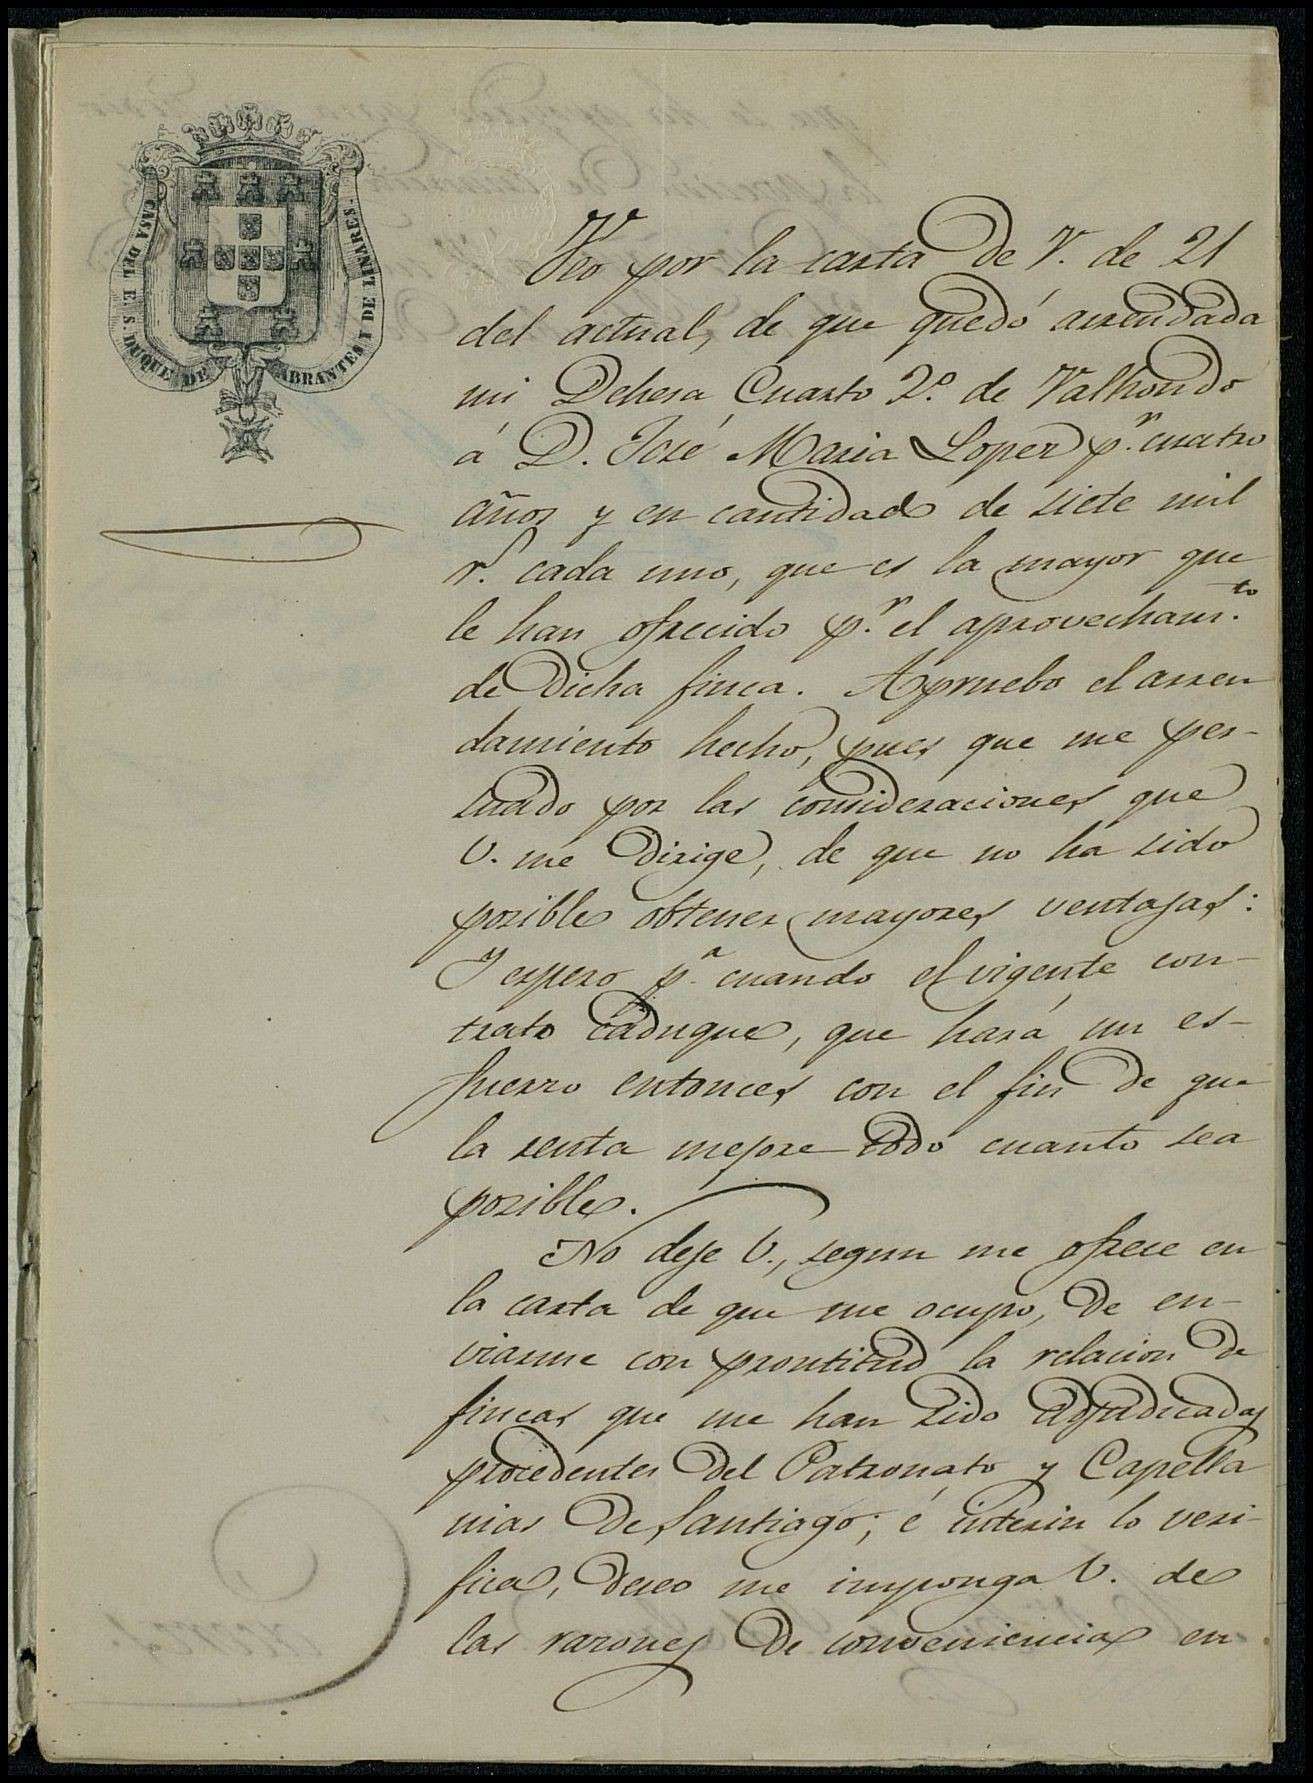 CASA DEL E. S. DUQUE DE ABRANTES Y DE LINARES.
Veo por la carta de V. de 21
del actual, de que quedó arrendada
mi Dehesa Cuarto 2.º de Valhondo
á D. José Maria Lopez p.r cuatro
años y en cantidad de siete mil
r.s cada uno, que es la mayor que
le han ofrecido p.r el aprovecham.to
de dicha finca. Apruebo el arren
damiento hecho, pues que me per-
suado por las consideraciones que
V. me dirige, de que no ha sido
posible obtener mayores ventajas:
Y espero p.a cuando el vigente con-
trato caduque, que hará un es-
fuerzo entonces con el fin de que
la renta mejore todo cuanto sea
posible.
No deje V., segun me ofrece en
la carta de que me ocupo, de en-
viarme con prontitud la relacion de
fincas que me han sido adjudicadas
procedentes del Patronato y Capella
nias de Santiago; é interin lo veri-
fica, deseo me imponga V. de
las razones de conveniencia en